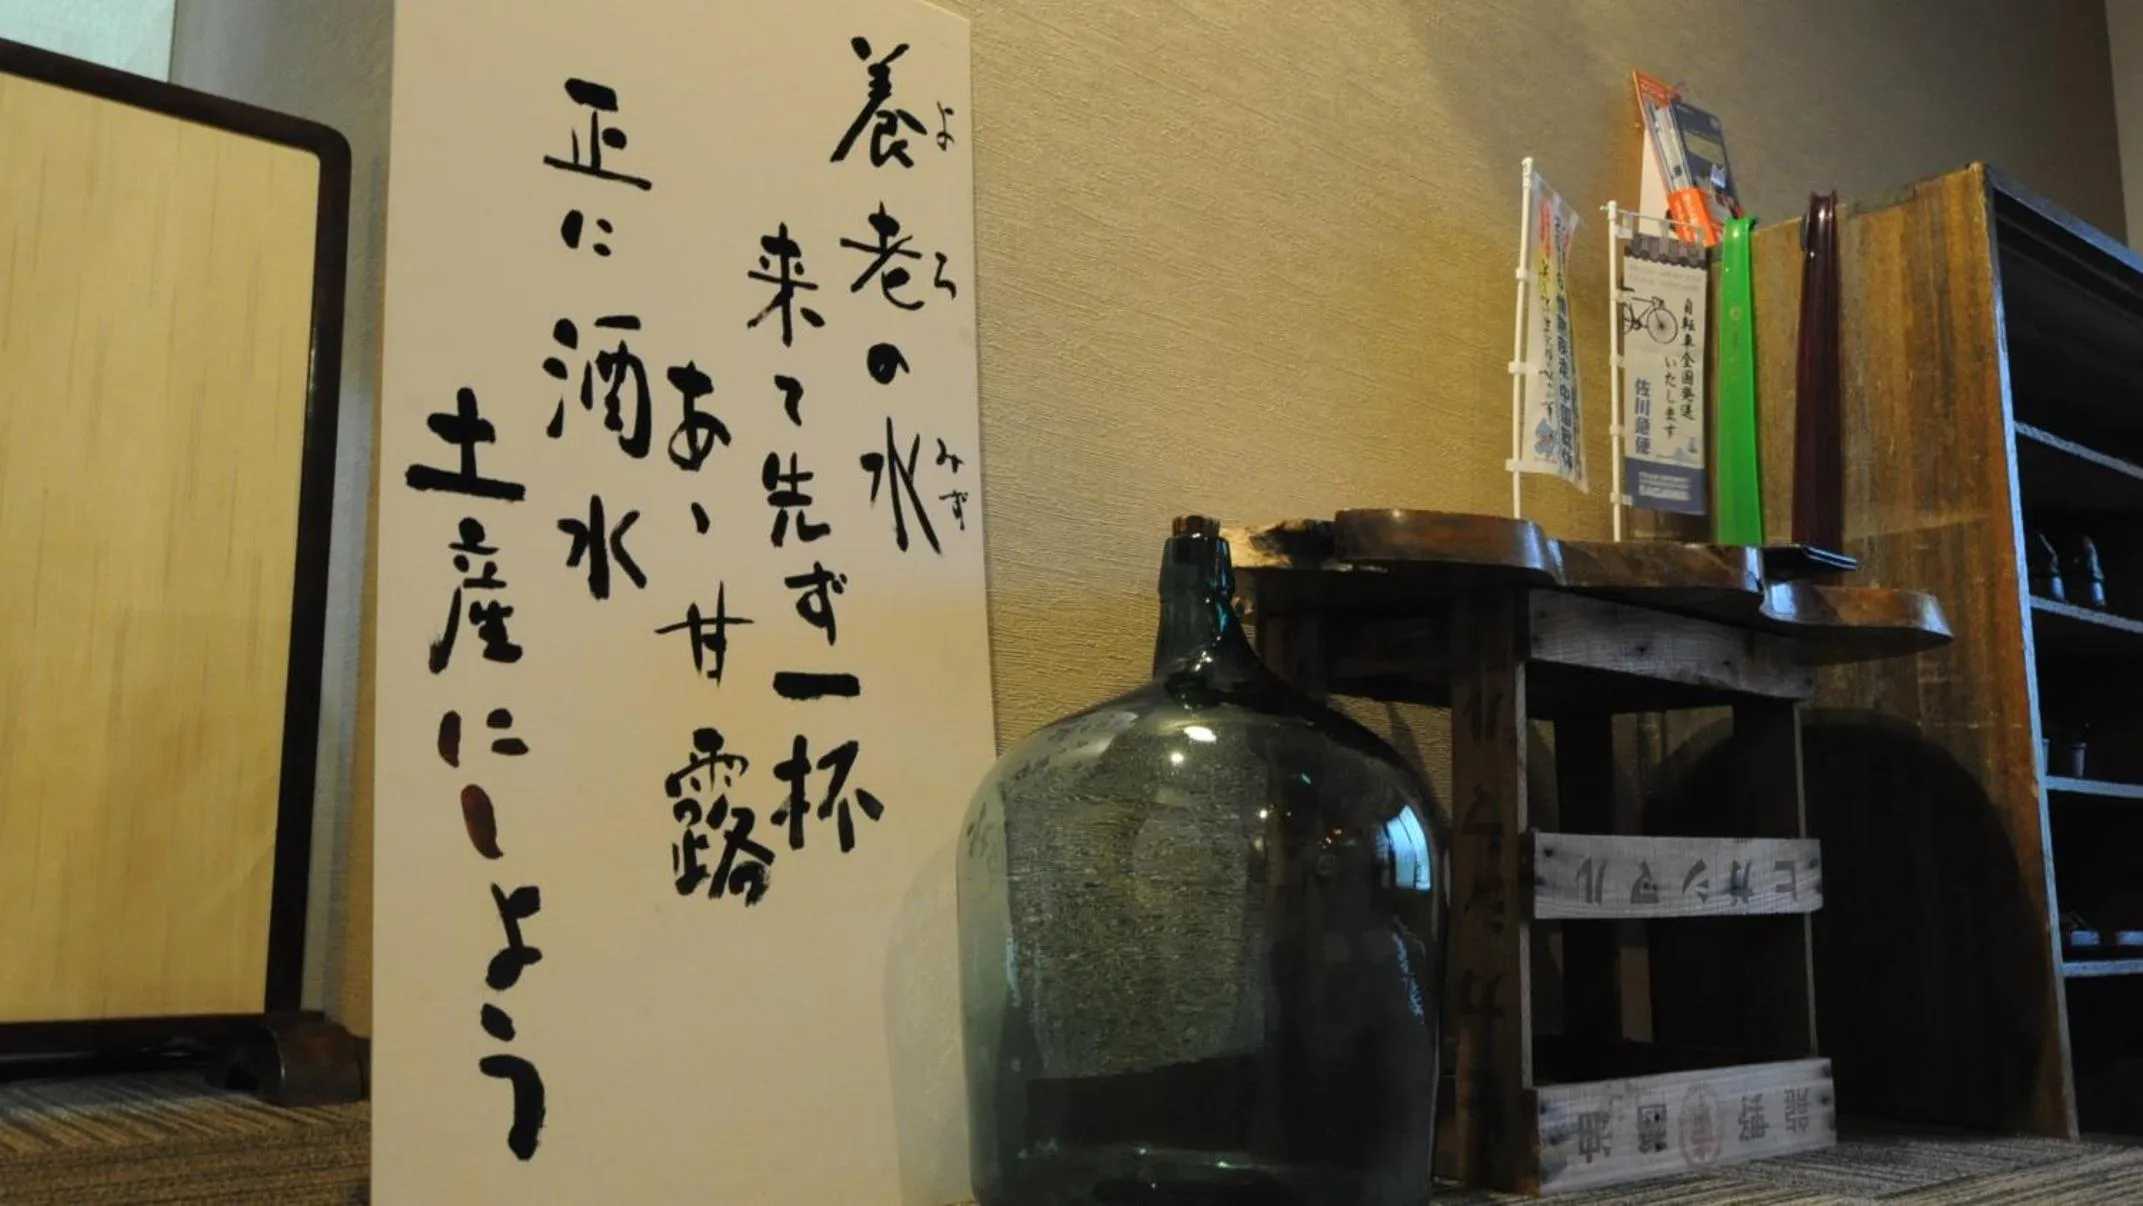 養老の水
よろみず
来て先ず一杯
あゝ甘露
正に酒水
土産にしよう
自転車全国発送
いたします
佐川急便
ヒガシマル